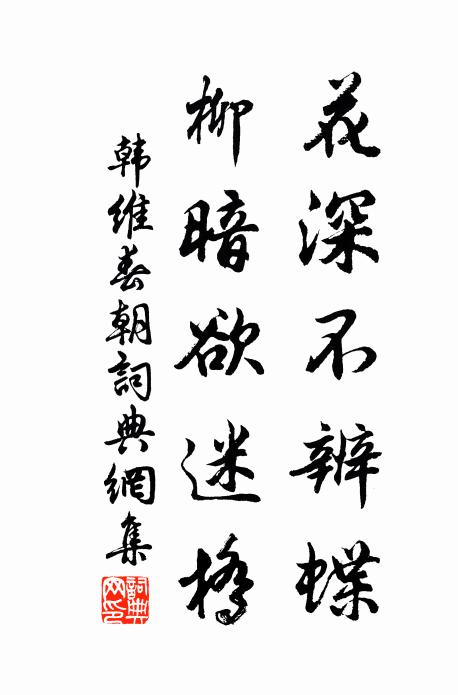 花深不辨蝶
柳暗欲迷橋
韩維春朝詞典網集
詞典网印